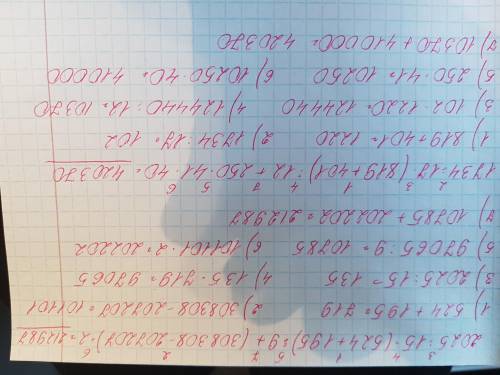 3 4 1 5 7 2 6
2025:15·(524+195):9+(308308-207207)·2=212987
1) 524+195=719 2) 308308-207207=101101
3) 2025:15=135 4) 135·719=97065
5) 97065:9=10785 6) 101101·2=202202
7) 10785+202202=212987
2 3 1 4 7 5 6
1734:17·(819+401):12+250·41·40=420370
1) 819+401=1220 2) 1734:17=102
3) 102·1220=124440 4) 124440:12=10370
5) 250·41=10250 6) 10250·40=410000
7) 10370+410000=420370